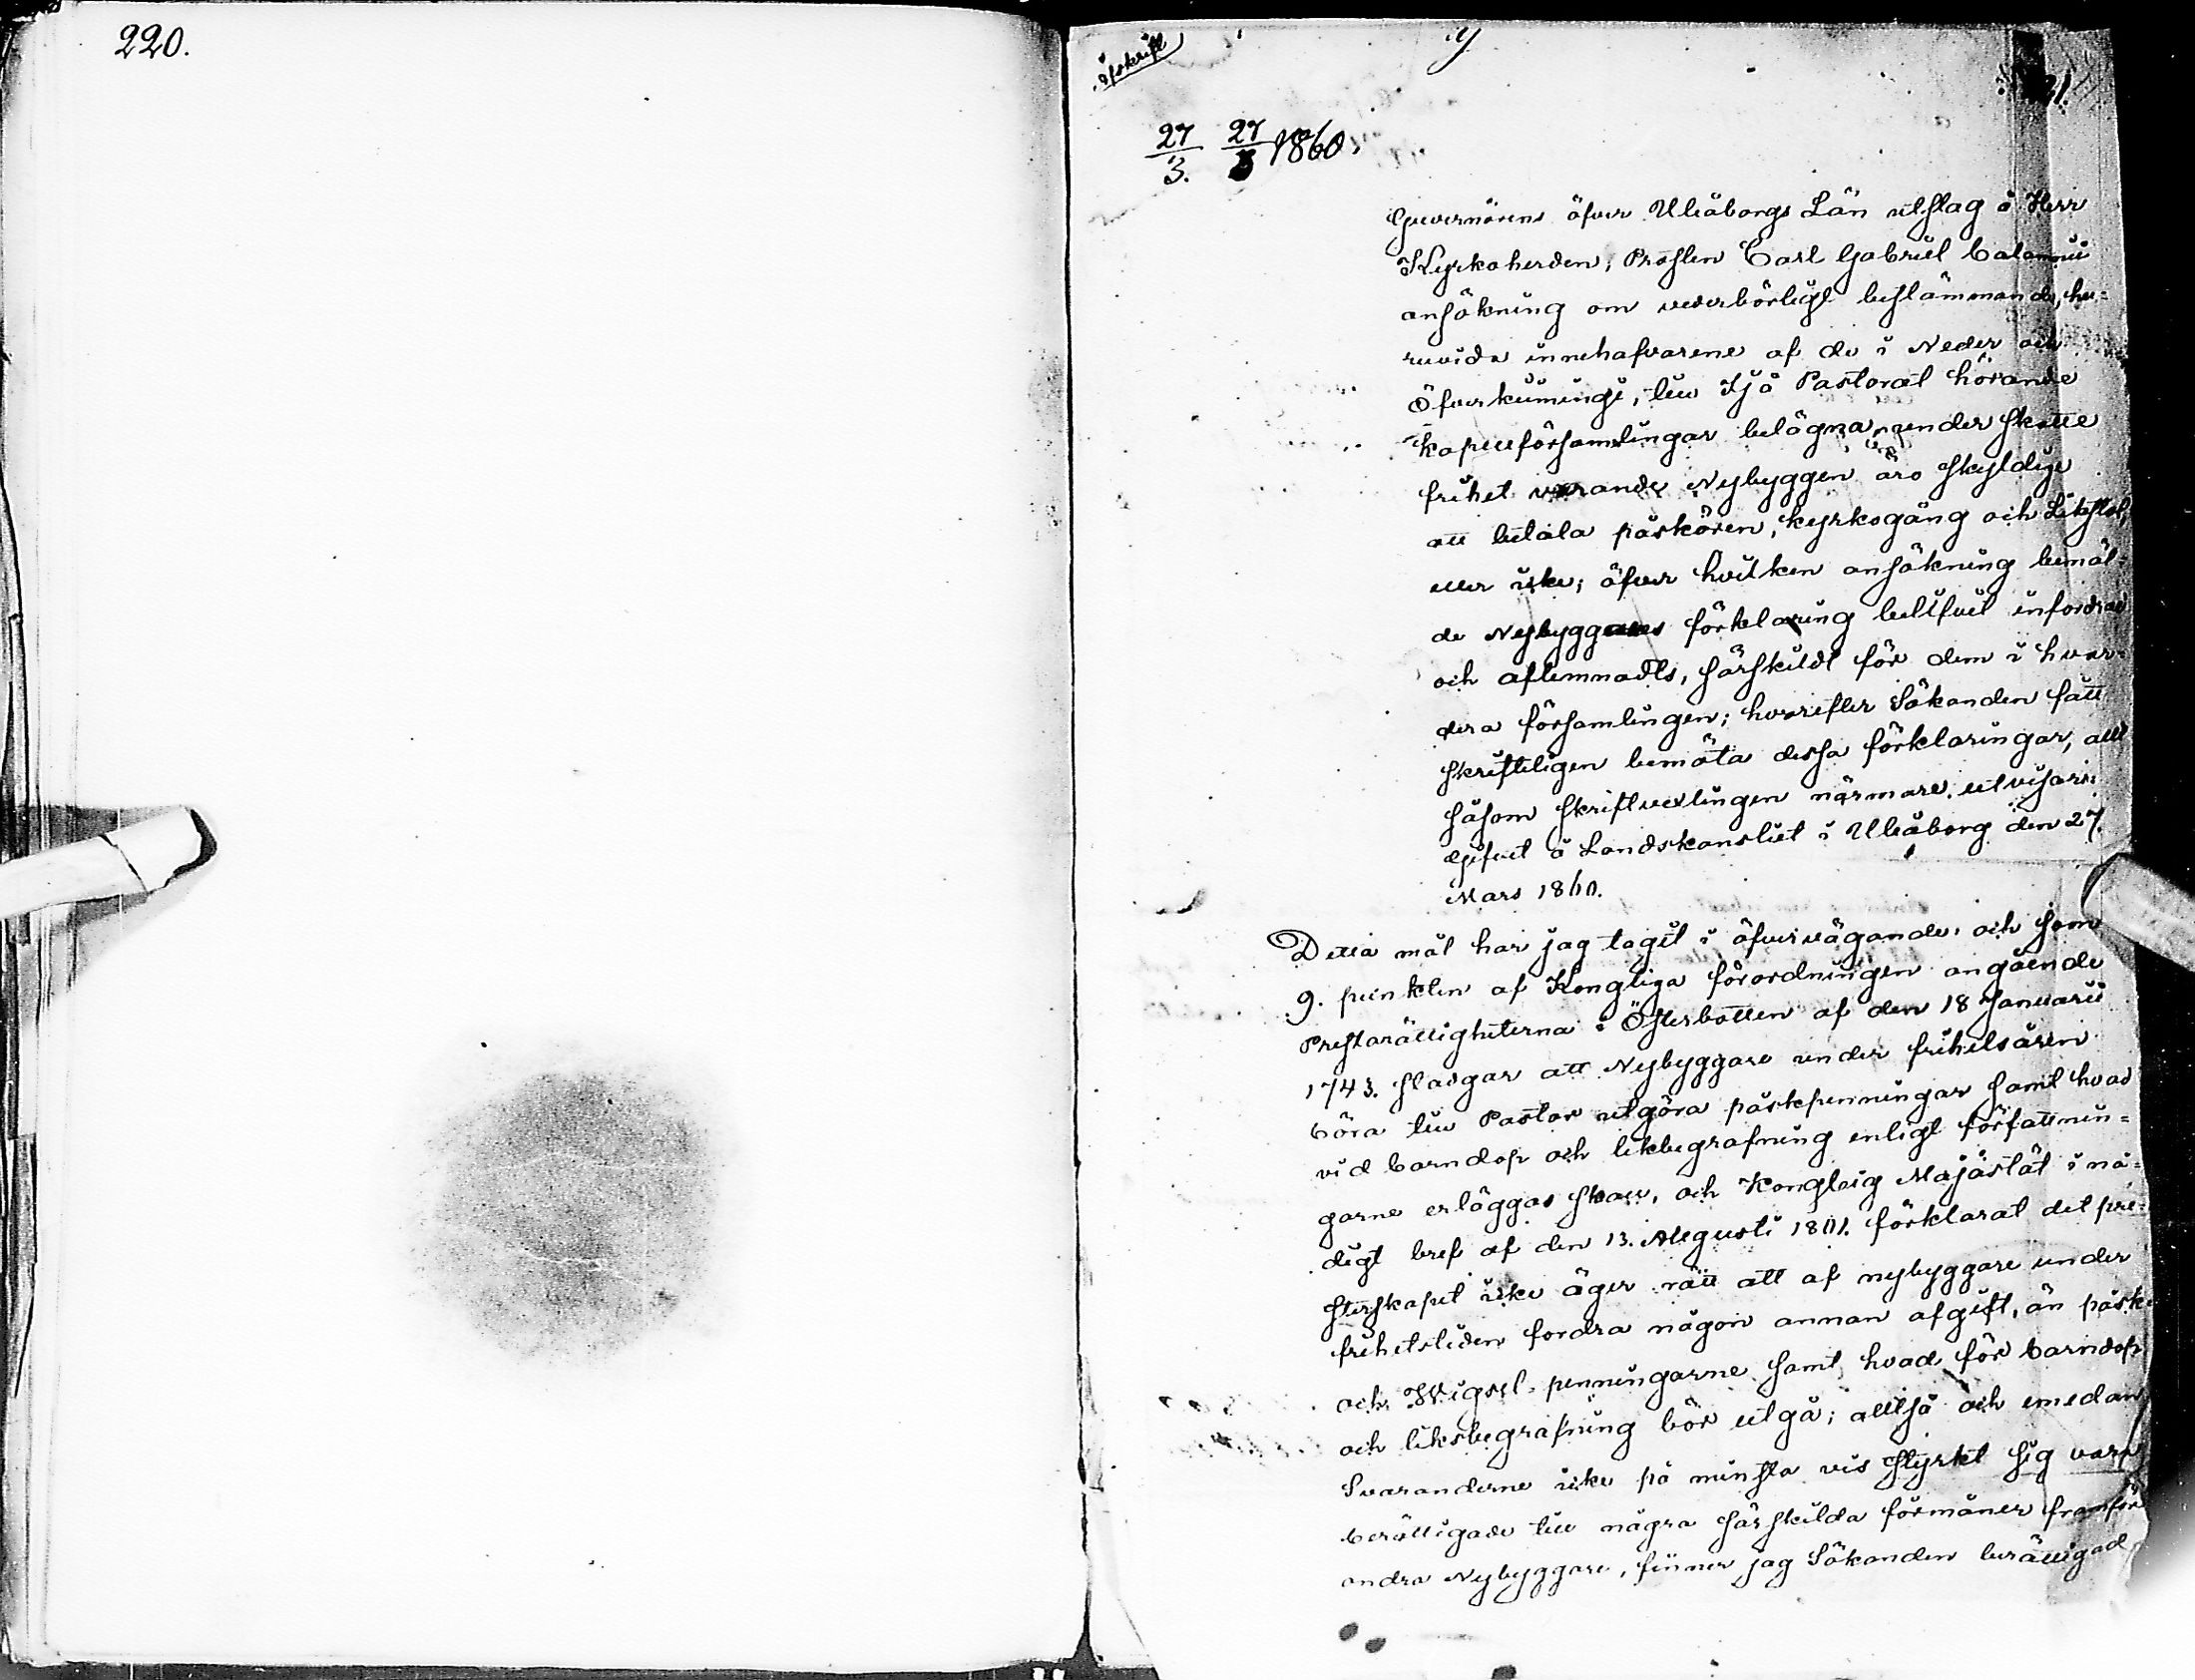 220.
Afskrift
27/3. 27/3 1860.
Guvernörens öfver Uleåborgs Län utslag å Herr
Kyrkoherden, Prosten Carl Gabriel Calamnii
ansökning om vederbörligt bestämmande, hu-
ruvida innehafvarene af de i Neder och
Öfverkiimingi, till Ijå Pastorat hörande
kapellförsamlingar belägna, under skatte
frihet varande Nybyggen äro skyldige
att betala påskören, kyrkogång och Likstol,
eller icke; öfver hvilken ansökning bemäl-
de Nybyggares förklaring blifvit infordrad
och aflemnadts, särskildt för dem i hvar-
dera församlingen; hvarefter Sökanden fått
skriftligen bemöta dessa förklaringar, allt
såsom skriftvexlingen närmare utvisar;
Gifvet å Landskansliet i Uleåborg den 27.
Mars 1860.
Detta mål har jag tagit i öfvervägande; och som
9. punkten af Kongliga förordningen angående
Prestarättigheterna i Österbotten af den 18 Januarii
1743. stadgar att Nybyggare under frihetsåren
böra till Pastor utgöra påskpenningar samt hvad
vid barndop och likbegrafning enligt författnin-
garne erläggas skall, och Konglig Majestät i nå-
digt bref af den 13. Augusti 1801. förklarat det pre-
sterskapet icke äger rätt att af nybyggare under
frihetstiden fordra någon annan afgift, än påsk-
och Wigsel-penningarne samt hvad för barndop
och liksbegrafning bör utgå; alltså och emedan
Svaranderne icke på minsta vis styrkt sig vara
berättigade till några särskilda förmåner framför
andra Nybyggare, finner jag Sökanden berättigad